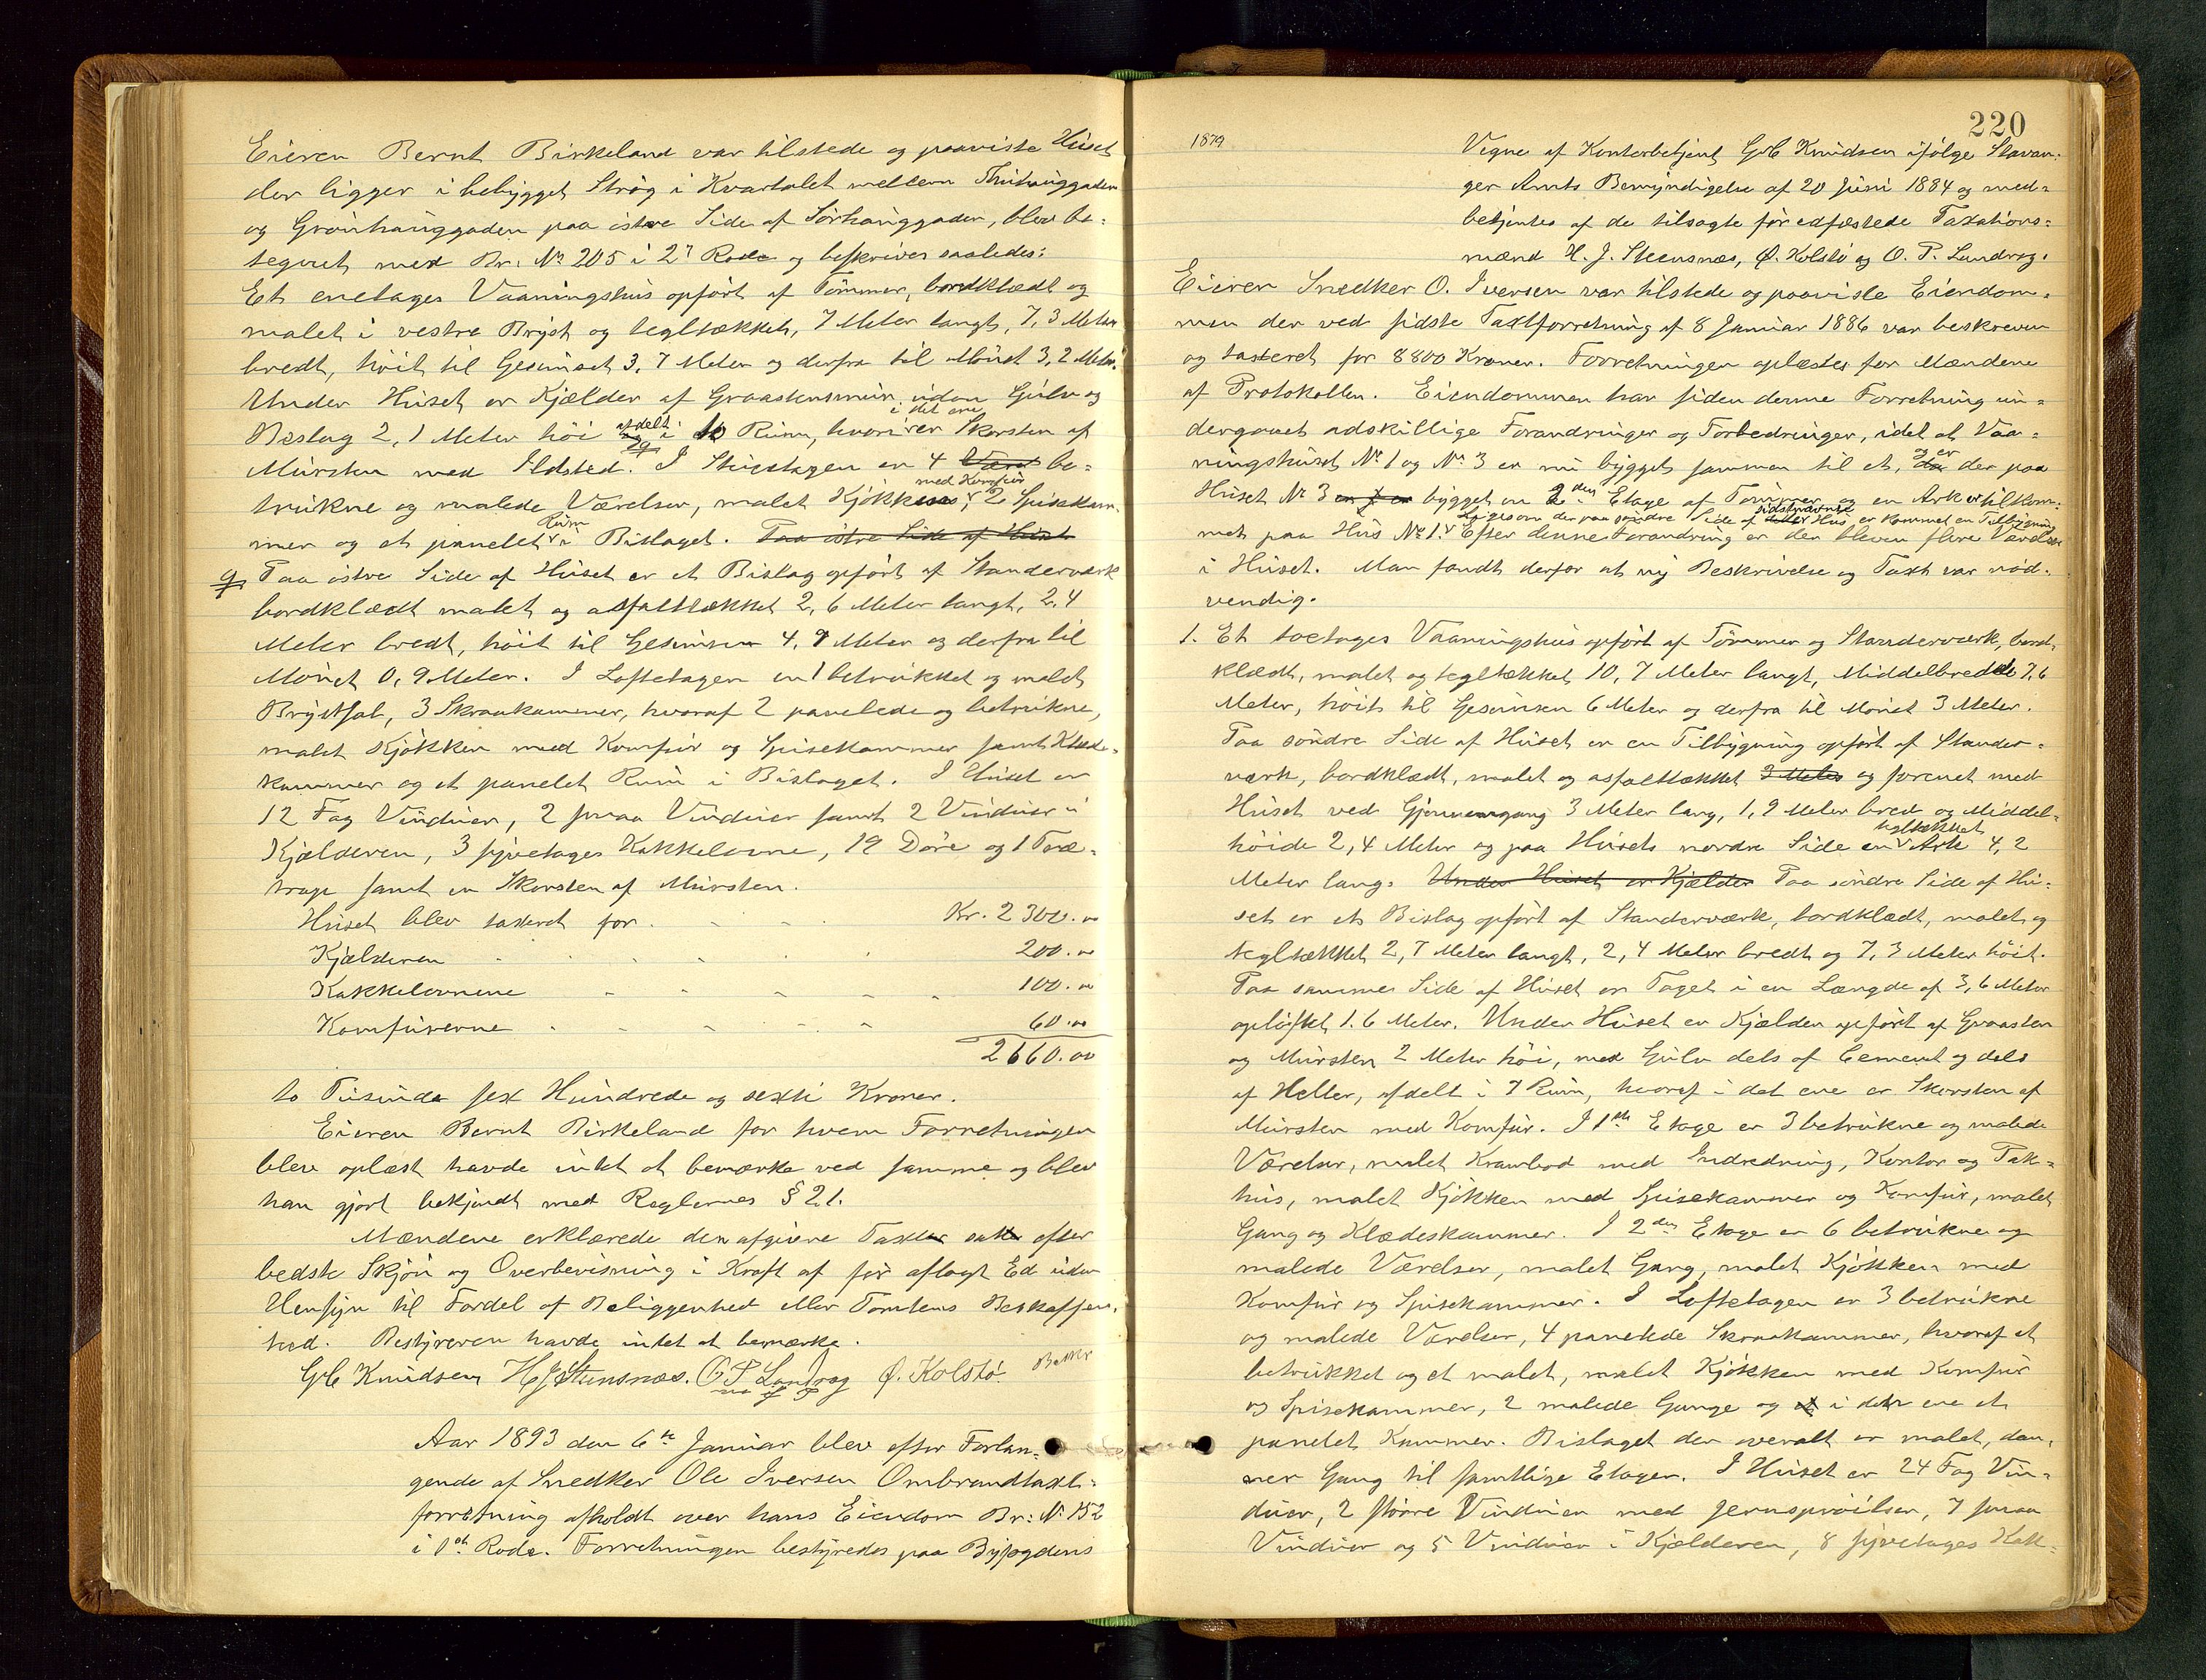 Eieren Bernt Birkeland var tilstede og paaviste Huset
der ligger i bebygget Strøg i Kvartalet mellem Thuhauggaden
og Grønhauggaden paa østre Side af Sørhauggaden, blev be-
tegnet med Br. No 205 i 2n Rode og beskrives saaledes:
Et enetages Vaaningshus opført af Tømmer, bordklædt og
malet i vestre Bryst og tegltækket, 7 Meter langt, 7,3 Meter
bredt, høit til Gesimset 3,7 Meter og derfra til Mønet 3,2 Meter.
Under Huset er Kjælder af Graastensmur uden Gulv og
Beslag 2,1 Meter høi afdelt i to Rum, hvori i det ene er Skorsten af
Mursten med Ildsted. I Stuetagen er 4 Være be-
trukne og malede Værelser, malet Kjøkken med Komfur, 2 Spisekam
mer og et panelet Rum i Bislaget. Paa østre Side af Huset
Paa østre Side af Huset er et Bislag opført af Standerværk
bordklædt malet og asfalttækket 2,6 Meter langt, 2,4
Meter bredt, høit til Gesimsen 4,9 Meter og derfra til
Mønet 0,9 Meter. I Loftetagen en 1 betrukket og malet
Brystsal, 3 Skraakammer, hvoraf 2 panelede og betrukne,
malet Kjøkken med Komfur og Spisekammer samt Klæde-
kammer og et panelet Rum i Bislaget. I Huset er
12 Fag Vinduer, 2 smaa Vinduer samt 2 Vinduer i
Kjælderen, 3 fyretages Kakkelovne, 19 Døre og 1 Træ-
trap samt en Skorsten af Mursten.
Huset blev taxeret for Kr. 2300.00
Kjælderen 200.00
Kakkelovnene 100.00
Komfurerne 60.00
2660.00
to Tusinde sex Hundrede og sexti Kroner.
Eieren Bernt Birkeland for hvem Forretningen
blev oplæst havde intet at bemærke ved samme og blev
han gjort bekjendt med Reglernes § 21.
Mændene erklærede den afgivne Taxter satt efter
bedste Skjøn og Overbevisning i Kraft af før aflagt Ed uden
Hensyn til Fordel af Beliggenhed eller Tomtens Beskaffen-
hed. Bestyreren havde intet at bemærke.
Gb Knudsen H J Steensnæs. O P Landvag Ø. Kolstø.
Aar 1893 den 6te Januar blev efter Forlan-
gende af Snedker Ole Iversen Ombrandtaxt-
forretning afholdt over hans Eiendom Br: No 152
i 1st Rode. Forretningen bestyredes paa Byfogdens
220
1879
Vegne af Kontorbetjent Gb Knudsen ifølge Stavan-
ger Amts Bemyndigelse af 20 Juni 1884 og med-
betjentes af de tilsagte før edfæstede Taxations-
mænd H. J. Steensnæs, Ø. Kolstø og O. P. Landvag.
Eieren Snedker O. Iversen var tilstede og paaviste Eiendom-
men der ved sidste Taxtforretning af 8 Januar 1886 var beskreven
og taxteret for 8800 Kroner. Forretningen oplæstes for Mændene
af Protokollen. Eiendommen har siden denne Forretning un-
dergaaet adskillige Forandringer og Forbedringer, idet at Vaa-
ningshuset No 1 og No 3 er nu bygget sammen til et, og er der paa
Huset No 3 bygget en 2den Etage af Tømmer og en Ark er tilkom-
Ligesom der paa søndre Side af sidstnævnte Hus er kommet en Tilbygning
met paa Hus No 1. Efter denne Forandring er der bleven flere Værelser
i Huset. Man fandt derfor at ny Beskrivelse og Taxt var nød-
vendig.
1. Et toetages Vaaningshus opført af Tømmer og Standerværk, bord-
klædt, malet og tegltækket 10,7 Meter langt, Middelbredde 7,6
Meter, høit til Gesimsen 6 Meter og derfra til Mønet 3 Meter.
Paa søndre Side af Huset er en Tilbygning opført af Stander-
værk, bordklædt, malet og asfalttækket 3 Meter og forenet med
Huset ved Gjennemgang 3 Meter lang, 1,9 Meter bred og Middel-
høide 2,4 Meter og paa Husets nordre Side en tegltækket Ark 4,2
Meter lang. Under Huset er Kjælder Paa søndre Side af Hu-
set er et Bislag opført af Standerværk, bordklædt, malet og
tegltækket 2,7 Meter langt, 2,4 Meter bredt og 7,3 Meter høit.
Paa samme Side af Huset er Taget i en Længde af 3,6 Meter
opløftet 1.6 Meter. Under Huset er Kjælder opført af Graasten
og Mursten 2 Meter høi, med Gulv dels af Cement og dels
af Heller, afdelt i 7 Rum, hvoraf i det ene er Skorsten af
Mursten med Komfur. I 1ste Etage er 3 betrukne og malede
Værelser, malet Krambod med Indredning, Kontor og Pak-
hus, malet Kjøkken med Spisekammer og Komfur, malet
Gang og Klædeskammer. I 2den Etage er 6 betrukne og
malede Værelser, malet Gang, malet Kjøkken med
Komfur og Spisekammer. I Loftetagen er 3 betrukne
og malede Værelser, 4 panelede Skraakammer, hvoraf et
betrukket og et malet, malet Kjøkken med Komfur
og Spisekammer, 2 malede Gange og i den ene et
panelet Kammer. Bislaget der overalt er malet, dan-
ner Gang til samtlige Etager. I Huset er 24 Fag Vin-
duer, 2 større Vinduer med Jernsprøilser, 7 smaa
Vinduer og 5 Vinduer i Kjælderen, 8 fyretages Kak-